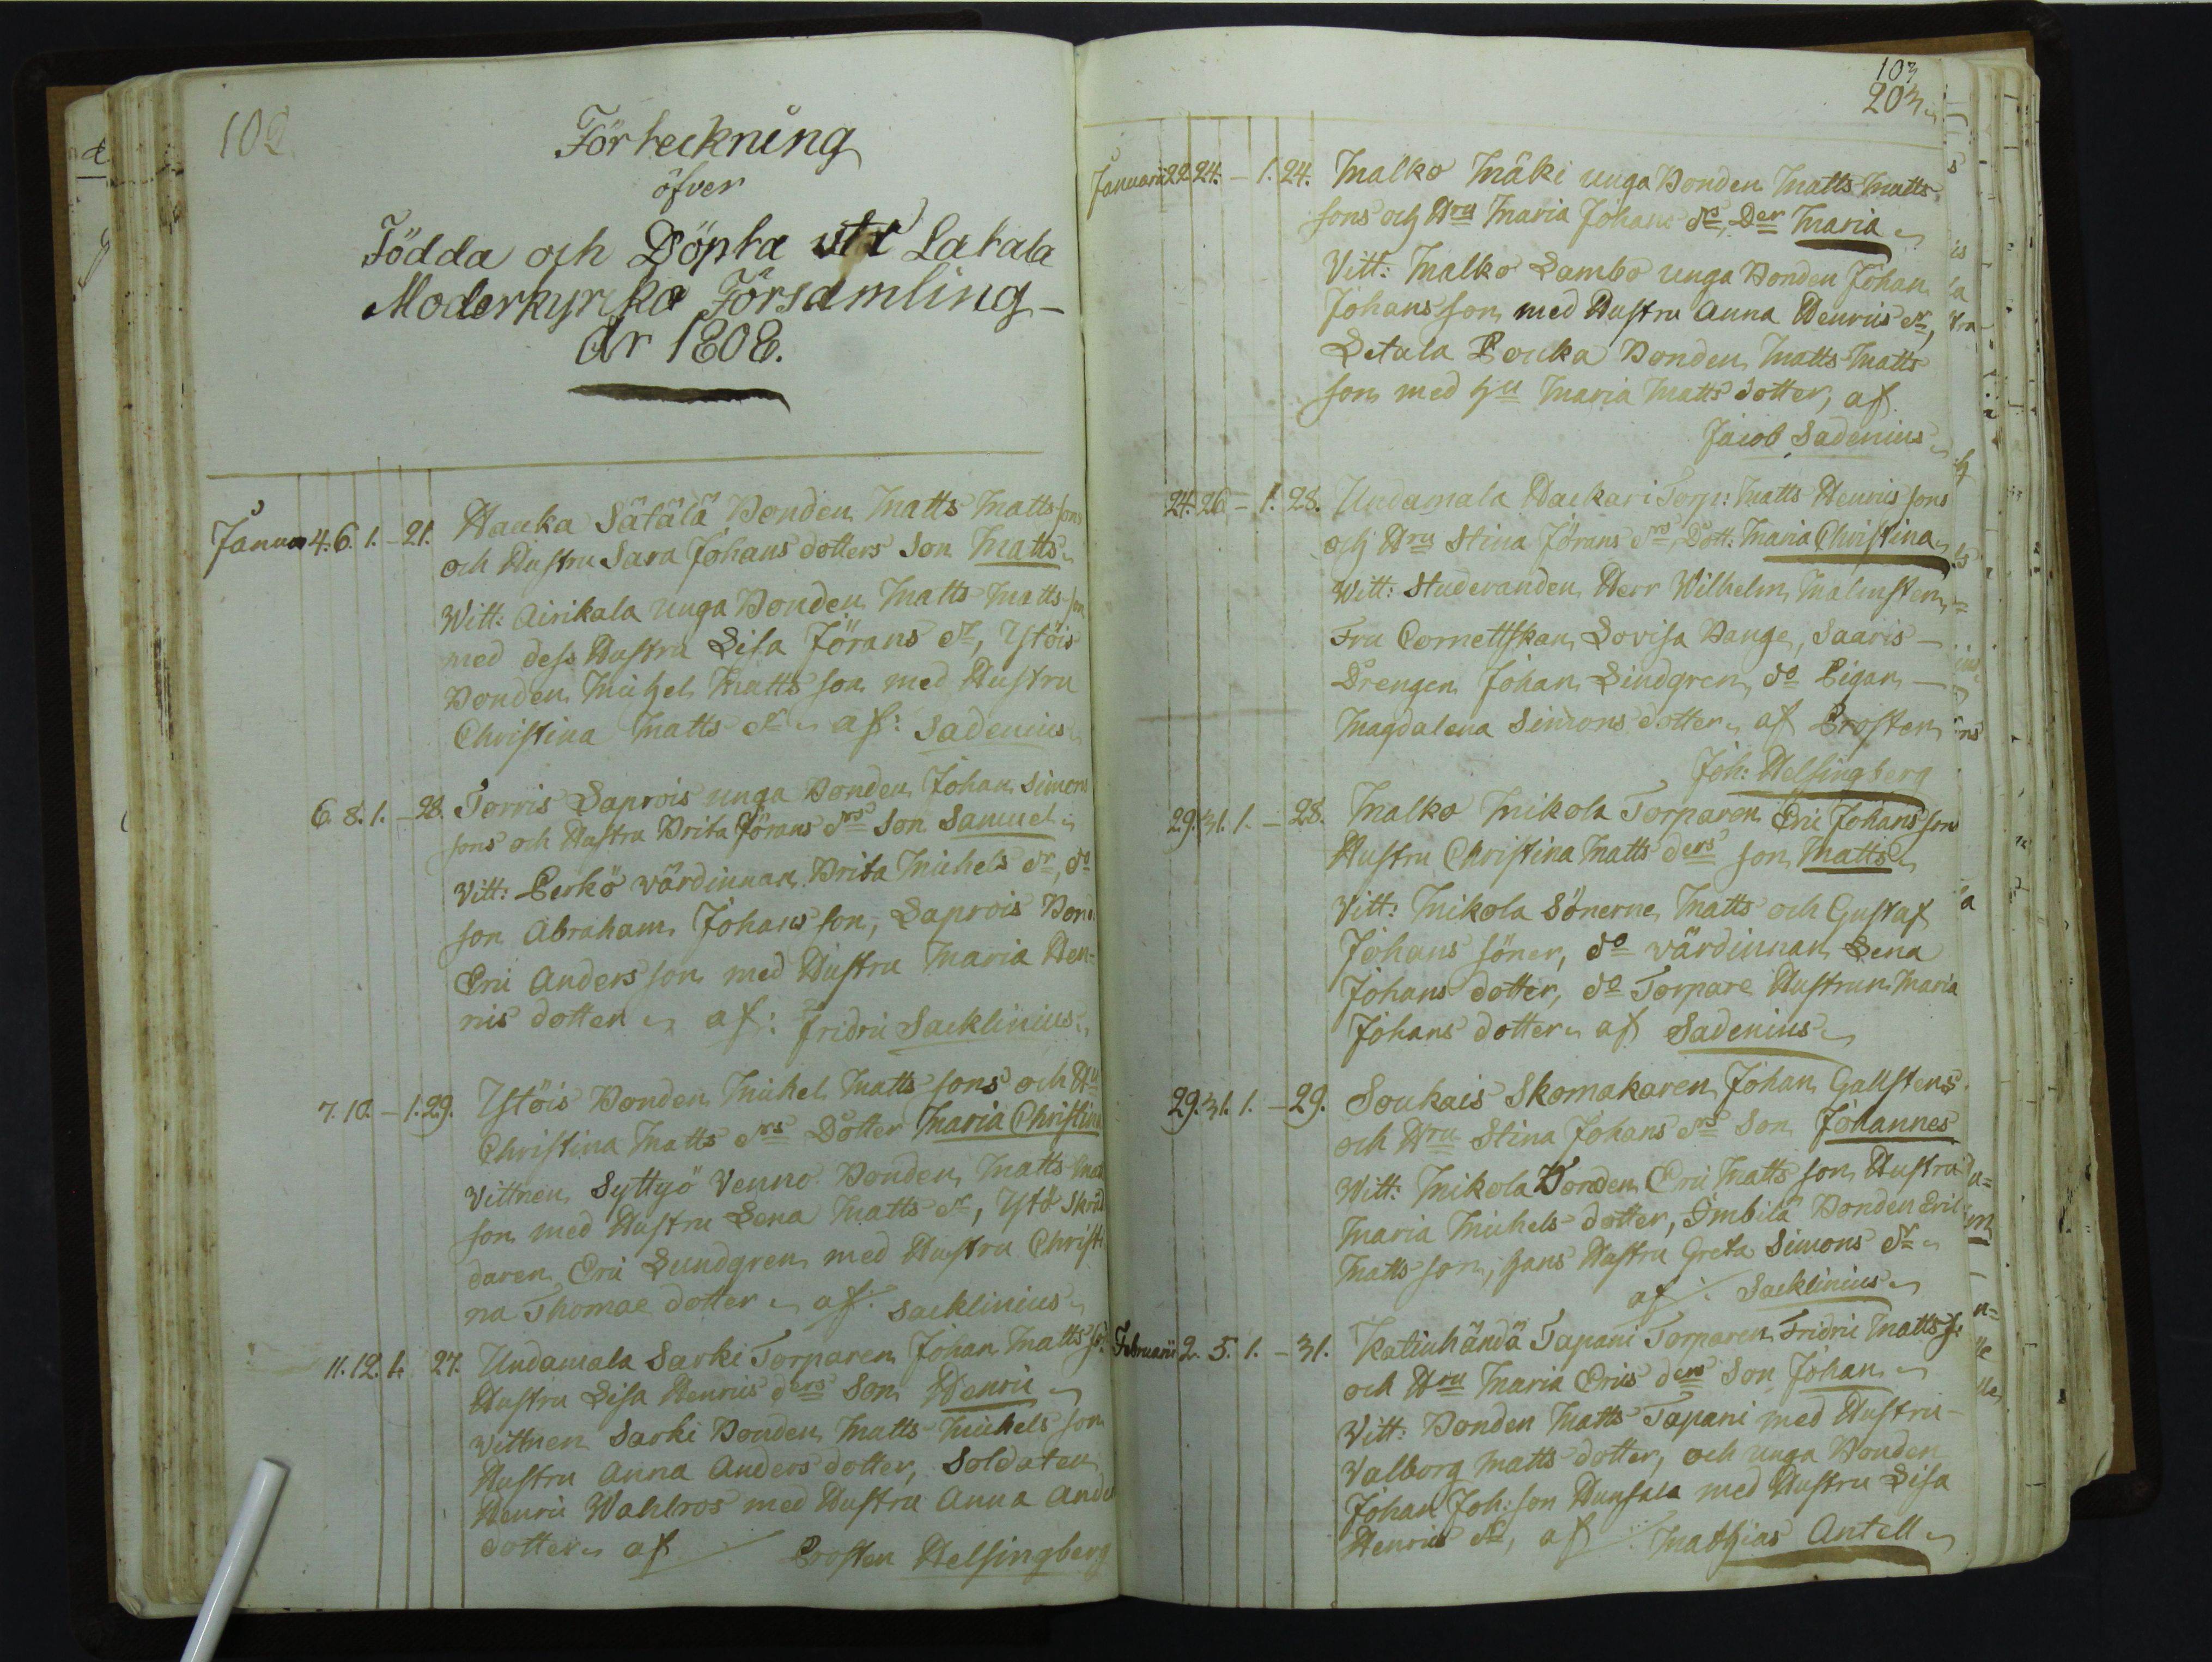 102
Förteckning
öfver
Födda och Döpta uti Latala
Moderkyrko Församling
år 1808.
Januar 4. 6. 1. - 21. Hauka Sätälä Bonden Matts Mattssons
och Hustru Sara Johans dotters Son Matts
Witt: Airikala unga Bonden Matts Mattsson
med dess Hustru Lisa Jörans dr, Ystöis
Bonden Michel Matts son med Hustru
Christina Matts dr af: Sadenius
6. 8. 1. - 28. Torris Saprois unga Bonden Johan Simons
sons och Hustru Brita Jörans drs Son Samuel
Vitt: Perkö wärdinnan Brita Michels dr, do
son Abraham Johansson, Saprois Bond
Eric Anders son med Hustru Maria Hen-
rics dotter af: Fridric Sacklinius
7. 10. - 1. 29. Ystöis Bonden Michel Matts sons och Hu
Christina Matts drs Dotter Maria Christina
Vittnen Syttyö Venno Bonden Matts Matts
son med Hustru Lena Matts dr, Ystö Skräd
daren Eric Lundgren med Hustru Christi
na Thomae dotter af: Sacklinius
11. 12. 1. 27. Undamala Sarki Torparen Johan Matts
Hustru Lisa Henrics ders Son Henric
Vittnen Sarki Bonden Matts Michels son
Hustru Anna Anders dotter, Soldaten
Henric Wahlros med Hustru Anna Anders
dotter af Prosten Helsingberg
103
203
Januarii 22. 24. - 1. 24. Malko Mäki unga Bonden Matts Matts
sons och Hru Maria Johans drs Der Maria
Vitt: Malko Lambo unga Bonden Johan
Johansson med Hustru Anna Henrics dr,
Letala Pouka Bonden Matts Matts
son med hu Maria Matts dotter, af
Jacob Sadenius
24. 26 - 1. 28. Undamala Haekari Torp: Matts Henrics sons
och Hru Stina Jörans drs Dott: Maria Christina
Witt: Studeranden Herr Wilhelm Malmsten,
Fru Cornettskan Lovisa Bange, Saaris
Drengen Johan Lindgren, do Pigan
Magdalena Simons dotter af Prosten
Joh: Helsingberg
29. 31. 1. - 28. Malko Mikola Torparen Eric Johans sons
Hustru Christina Matts ders son Matts
Vitt: Mikola Sönerne Matts och Gustaf
Johans söner, do wärdinnan Lena
Johans dotter, do Torpare Hustrun Maria
Johans dotter af Sadenius
29. 31. 1. - 29. Soukais Skomakaren Johan Gallstens
och Hru Stina Johans drs Son Johannes
Witt: Mikola Bonden Eric Matts son Hustru
Maria Michels dotter, Ombilä Bonden Eric
Matts son, hans Hustru Greta Simons dr
af Sacklinius
Februarii 2. 5. 1. - 31. Katinhändä Tapani Torparen Fridric Matts s:
och Hru Maria Erics ders Son Johan
Vitt: Bonden Matts Tapani med Hustru
Valborg Matts dotter, och unga Bonden
Johan Joh: son Hunsala med Hustru Lisa
Henrics dr, af Mathias Antell